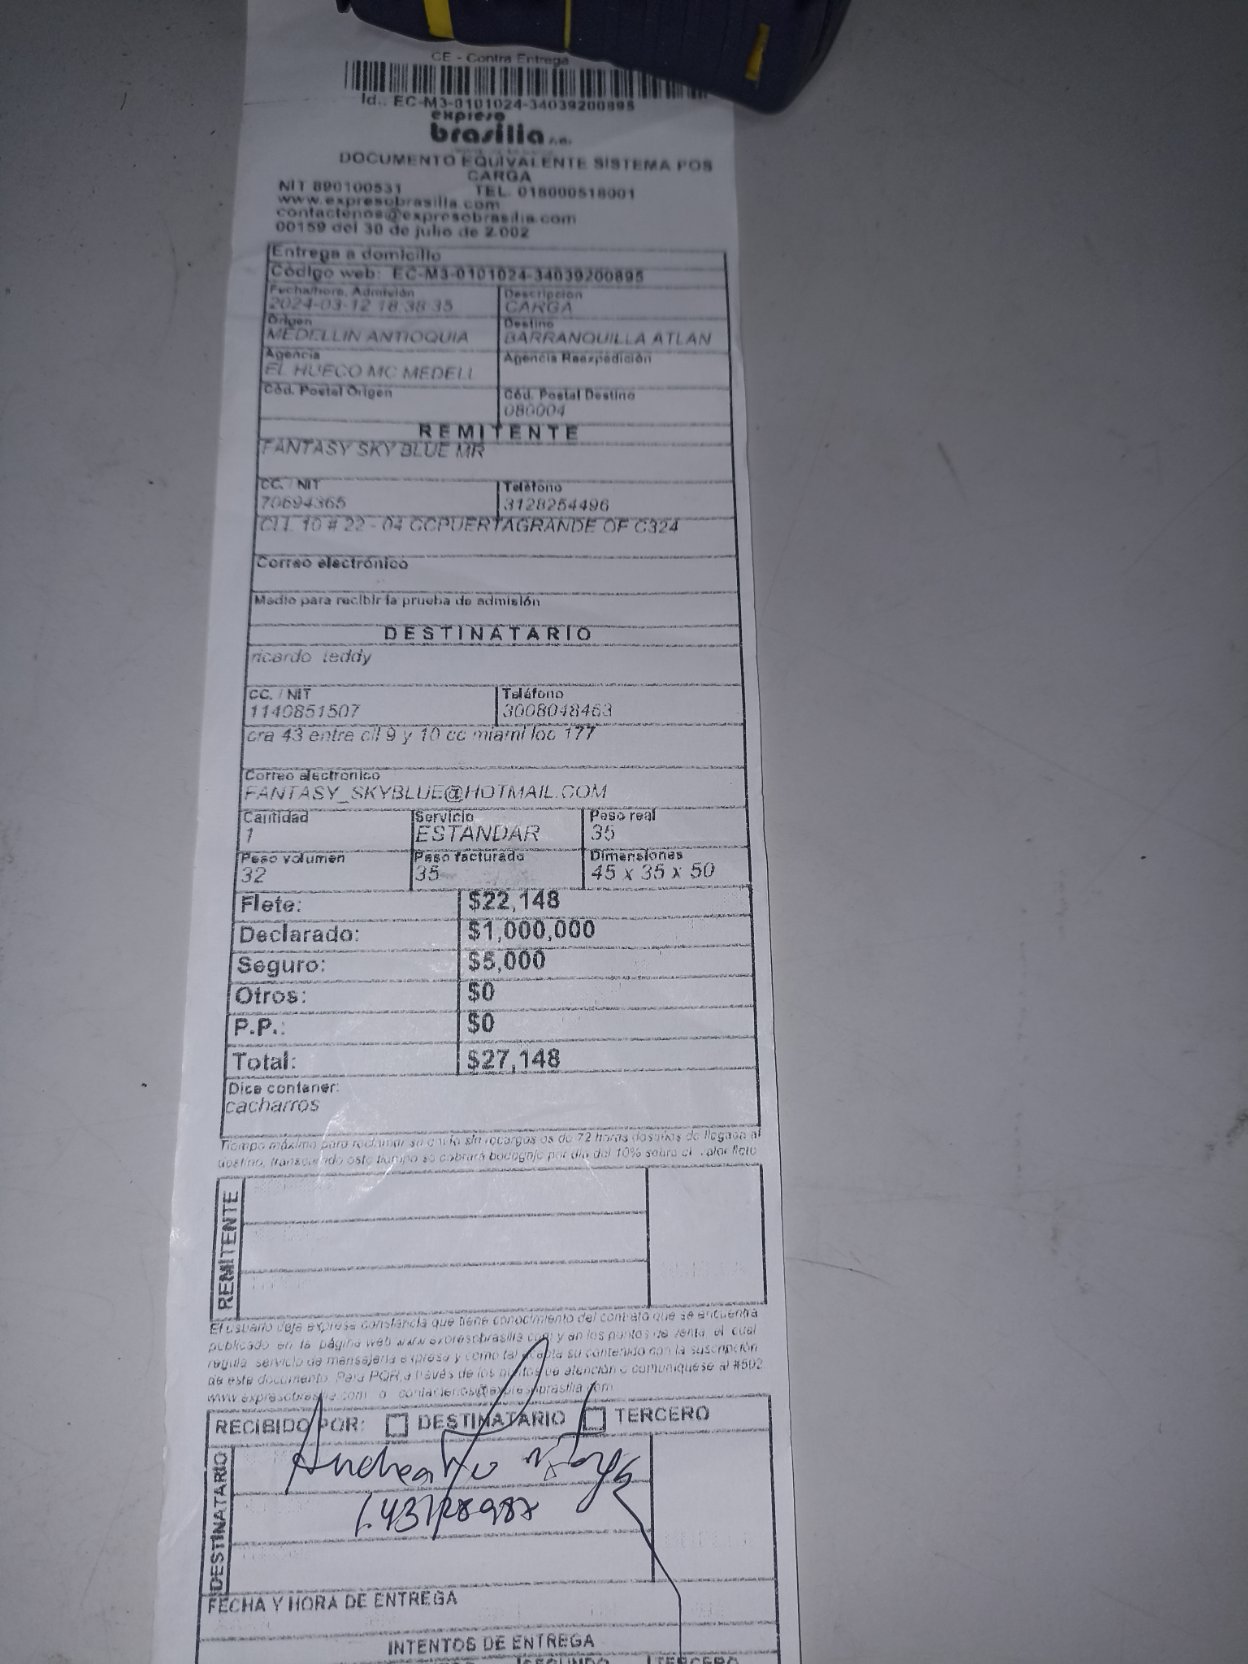 CE - Contra Entrega
Id.. EC-M3-0101024-34039200895
expreso
brasilia s.a.
DOCUMENTO EQUIVALENTE SISTEMA POS
CARGA
NIT 890100531 TEL. 018000518001
www.expresobrasilia.com
contactenos@expresobrasilia.com
00159 del 30 de julio de 2.002
Entrega a domicilio
Código web: EC-M3-0101024-34039200895
Fecha/hora. Admisión Descripcion
2024-03-12 18:38:35 CARGA
Origen Destino
MEDELLIN ANTIOQUIA BARRANQUILLA ATLAN
Agencia Agencia Reexpedición
EL HUECO MC MEDELL
Cód. Postal Origen Cód. Postal Destino
080004
REMITENTE
FANTASY SKY BLUE MR
CC. / NIT Teléfono
70694365 3128254496
CLL 10 # 22 - 04 CCPUERTAGRANDE OF C324
Correo electrónico
Medio para recibir la prueba de admisión
DESTINATARIO
ricardo teddy
CC. / NIT Teléfono
1140851507 3008048463
cra 43 entre cll 9 y 10 cc miami loc 177
Correo electronico
FANTASY_SKYBLUE@HOTMAIL.COM
Cantidad Servicio Peso real
1 ESTANDAR 35
Peso volumen Peso facturado Dimensiones
32 35 45 x 35 x 50
Flete: $22,148
Declarado: $1,000,000
Seguro: $5,000
Otros: $0
P.P.: $0
Total: $27,148
Dice contener:
cacharros
Tiempo máximo para reclamar su envío sin recargos es de 72 horas después de llegada al
destino, transcurrido este tiempo se cobrará bodegaje por día del 10% sobre el valor flete
REMITENTE
El usuario deja expresa constancia que tiene conocimiento del contrato que se encuentra
publicado en la página web www.expresobrasilia.com y en los puntos de venta, el cual
regula servicio de mensajería expresa y como tal acepta su contenido con la suscripción
de este documento. Para PQR a través de los puntos de atención o comuniquese al #502
www.expresobrasilia.com o contactenos@expresobrasilia.com
RECIBIDO POR: DESTINATARIO TERCERO
DESTINATARIO
FECHA Y HORA DE ENTREGA
INTENTOS DE ENTREGA
SEGUNDO TERCERO